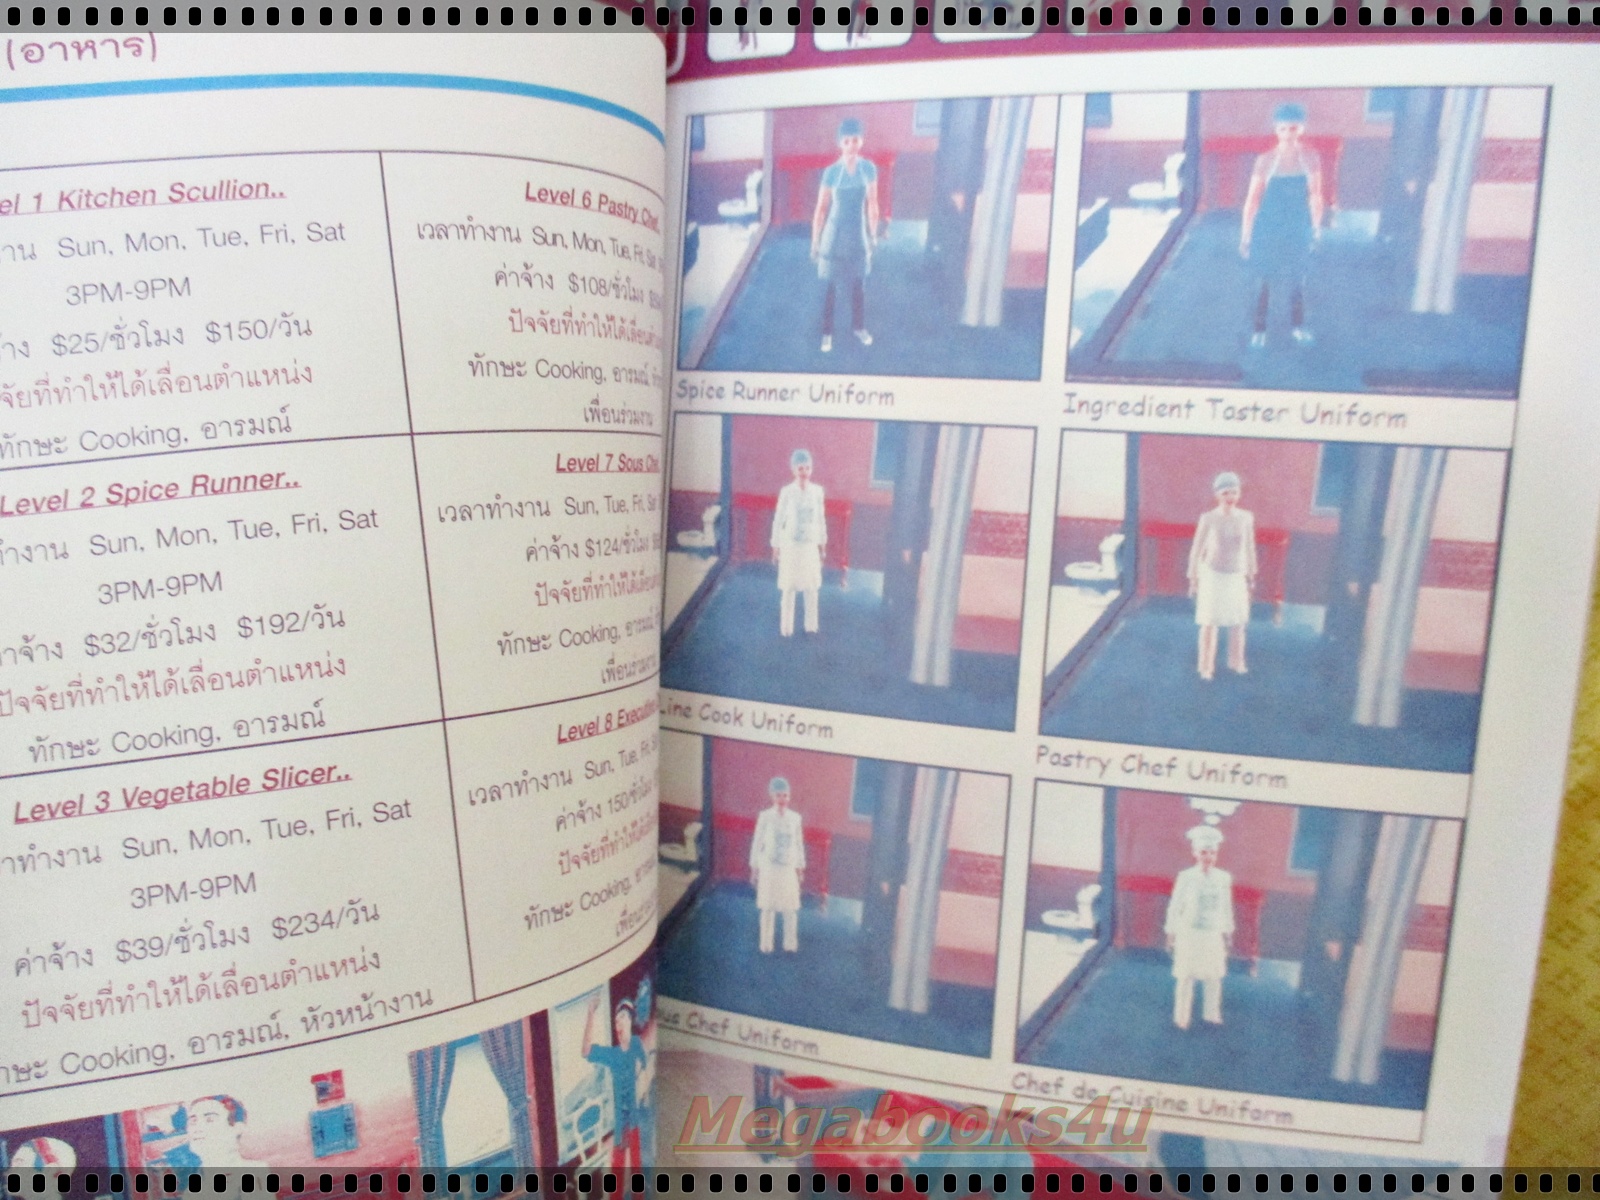 (อาหาร)
Kitchen Scullion..
Sun, Mon, Tue, Fri, Sat
3PM-9PM
$25/ชั่วโมง $150/วัน
ที่ทำให้ได้เลื่อนตำแหน่ง
ทักษะ Cooking, อารมณ์
Level 2 Spice Runner..
Sun, Mon, Tue, Fri, Sat
3PM-9PM
$32/ชั่วโมง $192/วัน
ปัจจัยที่ทำให้ได้เลื่อนตำแหน่ง
ทักษะ Cooking, อารมณ์
Level 3 Vegetable Slicer..
Sun, Mon, Tue, Fri, Sat
3PM-9PM
ค่าจ้าง $39/ชั่วโมง $234/วัน
ปัจจัยที่ทำให้ได้เลื่อนตำแหน่ง
Cooking, อารมณ์, หัวหน้างาน
Level 6 Pastry Chef
เวลาทำงาน Sun, Mon, Tue, Fri, Sat
ค่าจ้าง $108/ชั่วโมง
ปัจจัยที่ทำให้ได้เลื่อน
ทักษะ Cooking, อารมณ์,
เพื่อนร่วมงาน
Level 7 Sous Chef
เวลาทำงาน Sun, Tue, Fri, Sat
ค่าจ้าง $124/ชั่วโมง
ปัจจัยที่ทำให้ได้เลื่อน
ทักษะ Cooking,
เพื่อนร่วมงาน
Level 8
เวลาทำงาน Sun, Tue, Fri,
ค่าจ้าง 150/ชั่วโมง
ปัจจัยที่ทำให้ได้
ทักษะ Cooking,
Spice Runner Uniform
Ingredient Taster Uniform
Line Cook Uniform
Pastry Chef Uniform
Chef Uniform
Chef de Cuisine Uniform
Megabooks4u